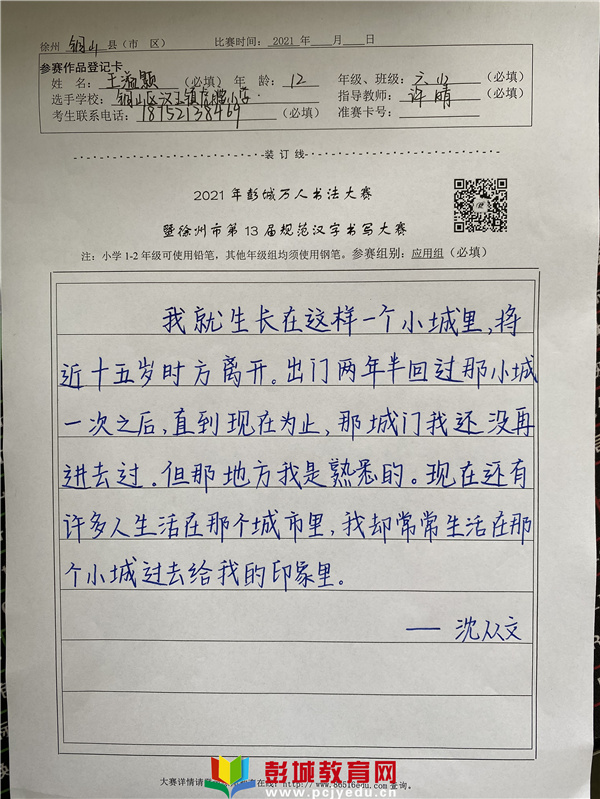 徐州 铜山 县（市 区） 比赛时间：2021 年 月 日
参赛作品登记卡
姓 名：王溢颢（必填）年 龄：12 年级、班级：六（必填）
选手学校：铜山区汉王镇 小学 指导教师：许晴（必填）
考生联系电话：18952138469（必填） 准赛卡号：
装 订 线
2021 年彭城万人书法大赛
暨徐州市第 13 届规范汉字书写大赛
注：小学 1-2 年级可使用铅笔，其他年级组均须使用钢笔。参赛组别：应用组（必填）
我就生长在这样一个小城里，将
近十五岁时方离开。出门两年半回过那小城
一次之后，直到现在为止，那城门我还没再
进去过。但那地方我是熟悉的。现在还有
许多人生活在那个城市里，我却常常生活在那
个小城过去给我的印象里。
—— 沈从文
大赛详情请 查询。
彭城教育网
www.pcjyedu.cn